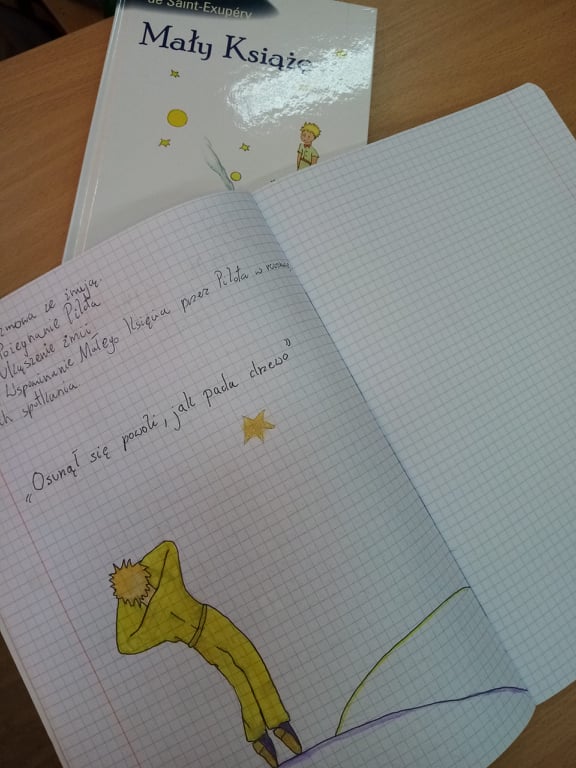 de Saint-Exupéry
Mały Książę
zmowa ze żmiją.
Pożegnanie Pilota
Ukąszenie żmii
Wspominanie Małego Księcia przez Pilota w
ch spotkania.
„Osunął się powoli, jak pada drzewo”